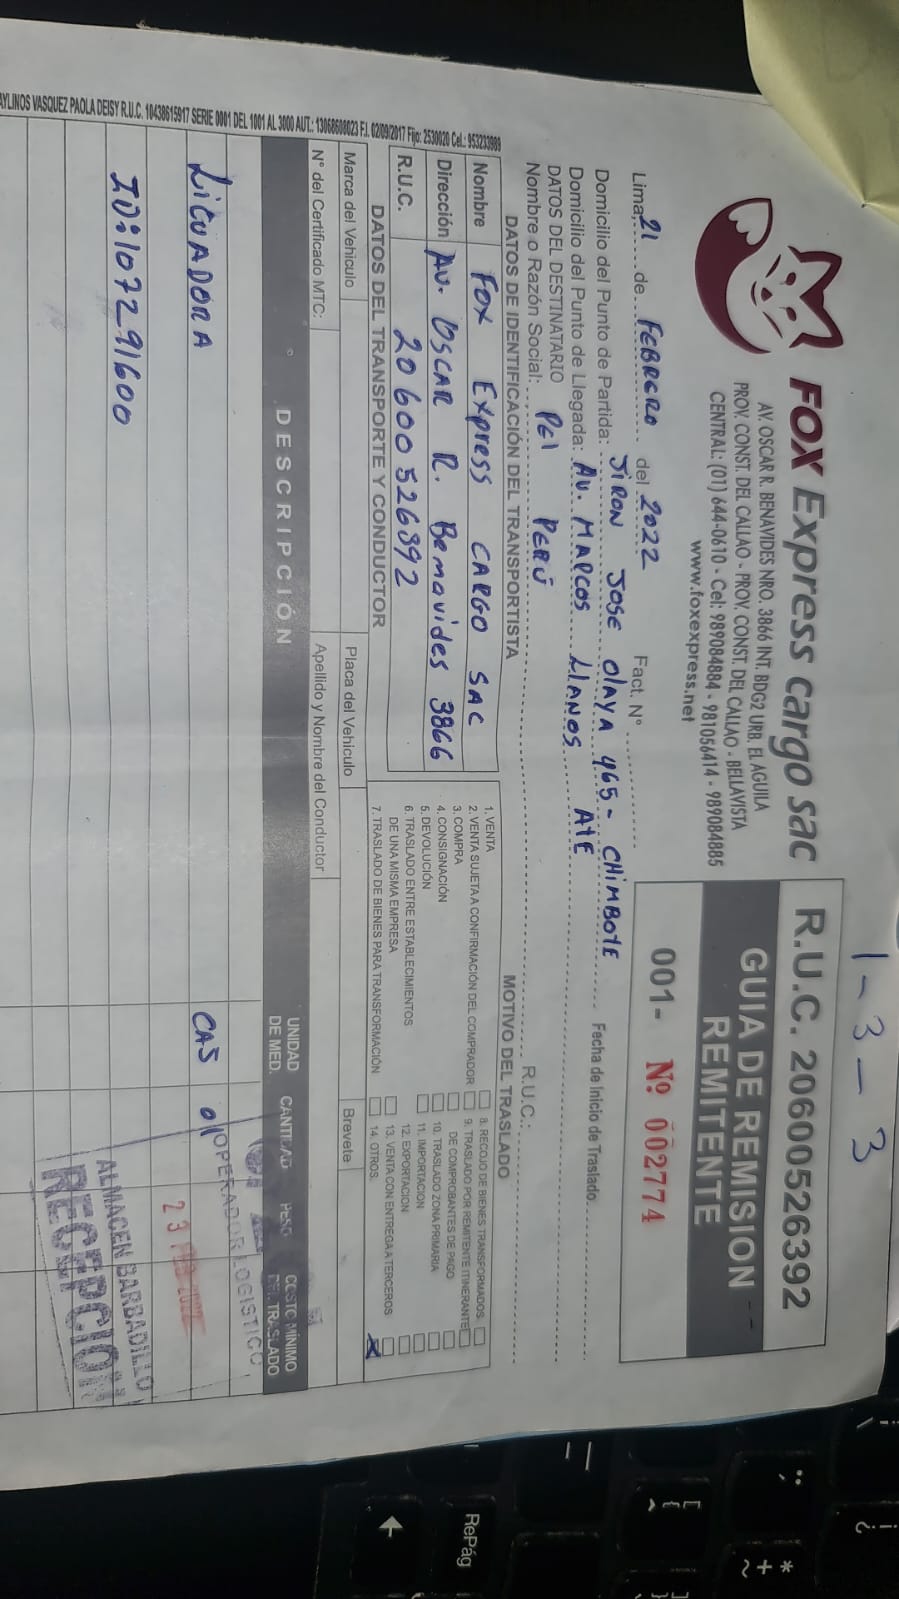 1-3-3
FOX Express cargo sac
AV. OSCAR R. BENAVIDES NRO. 3866 INT. BDG2 URB. EL AGUILA
PROV. CONST. DEL CALLAO - PROV. CONST. DEL CALLAO - BELLAVISTA
CENTRAL: (01) 644-0610 - Cel: 989084884 - 981056414 - 989084885
www.foxexpress.net
R.U.C. 20600526392
GUIA DE REMISION
REMITENTE
001- Nº 002774
Lima, 21 de FEBRERO del 2022 Fact. N°
Domicilio del Punto de Partida: JIRON JOSE OLAYA 465- CHIMBOTE Fecha de Inicio de Traslado
Domicilio del Punto de Llegada: AV. MARCOS LLANOS AtE
DATOS DEL DESTINATARIO
Nombre o Razón Social: PCI PERÚ R.U.C.
DATOS DE IDENTIFICACIÓN DEL TRANSPORTISTA
Nombre FOX Express CARGO SAC
Dirección AV. OSCAR R. Benavides 3866
R.U.C. 20600526392
MOTIVO DEL TRASLADO
1. VENTA
2. VENTA SUJETA A CONFIRMACIÓN DEL COMPRADOR
3. COMPRA
4. CONSIGNACIÓN
5. DEVOLUCIÓN
6. TRASLADO ENTRE ESTABLECIMIENTOS
DE UNA MISMA EMPRESA
7. TRASLADO DE BIENES PARA TRANSFORMACIÓN
8. RECOJO DE BIENES TRANSFORMADOS
9. TRASLADO POR REMITENTE ITINERANTE
DE COMPROBANTES DE PAGO
10. TRASLADO ZONA PRIMARIA
11. IMPORTACION
12. EXPORTACION
13. VENTA CON ENTREGA A TERCEROS
14. OTROS
DATOS DEL TRANSPORTE Y CONDUCTOR
Marca del Vehiculo Placa del Vehiculo Brevete
N° del Certificado MTC: Apellido y Nombre del Conductor
DESCRIPCIÓN UNIDAD DE MED. CANTIDAD PESO COSTO MÍNIMO DEL TRASLADO
LICUADORA CAS 01
ID:107291600
OPERADOR LOGISTICO
23 FEB 2022
ALMACEN BARBADILLO
RECEPCIÓN
VASQUEZ PAOLA DEISY R.U.C. 10438615917 SERIE 0001 DEL 1001 AL 3000 AUT.: 13068608023 F.I. 02/09/2017 Fijo: 2530020 Cel.: 953233989
RePág